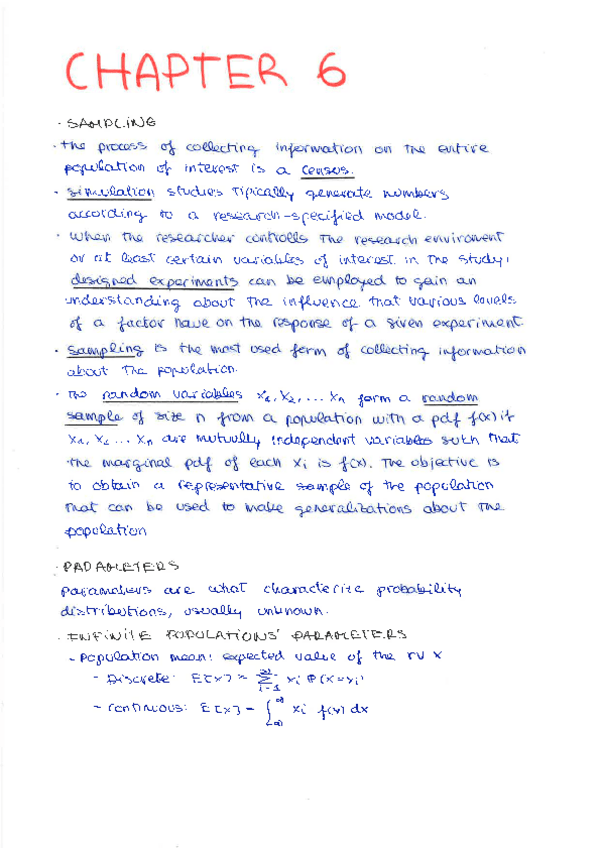 CHAPTER 6
· SAMPLING
· the process of collecting information on the entire
population of interest is a census.
· simulation studies tipically generate numbers
according to a research-specified model.
· when the researcher controlls the research enviroment
or at least certain variables of interest in the study,
designed experiments can be employed to gain an
understanding about the influence that various levels
of a factor have on the response of a given experiment.
· sampling is the most used form of collecting information
about the population.
· the random variables X₁, X₂, ... Xn form a random
sample of size n from a population with a pdf f(x) if
X₁, X₂ ... Xn are mutually independent variables such that
the marginal pdf of each Xi is f(x). The objective is
to obtain a representative sample of the population
that can be used to make generalizations about the
population
· PARAMETERS
parameters are what characterize probability
distributions, usually unknown.
· INFINITE POPULATIONS' PARAMETERS
- Population mean: expected value of the rv X
- Discrete: E[X] = ∑_{i=1}^{∞} xi P(X=xi)
- continuous: E[X] = ∫_{-∞}^{∞} xi f(x) dx